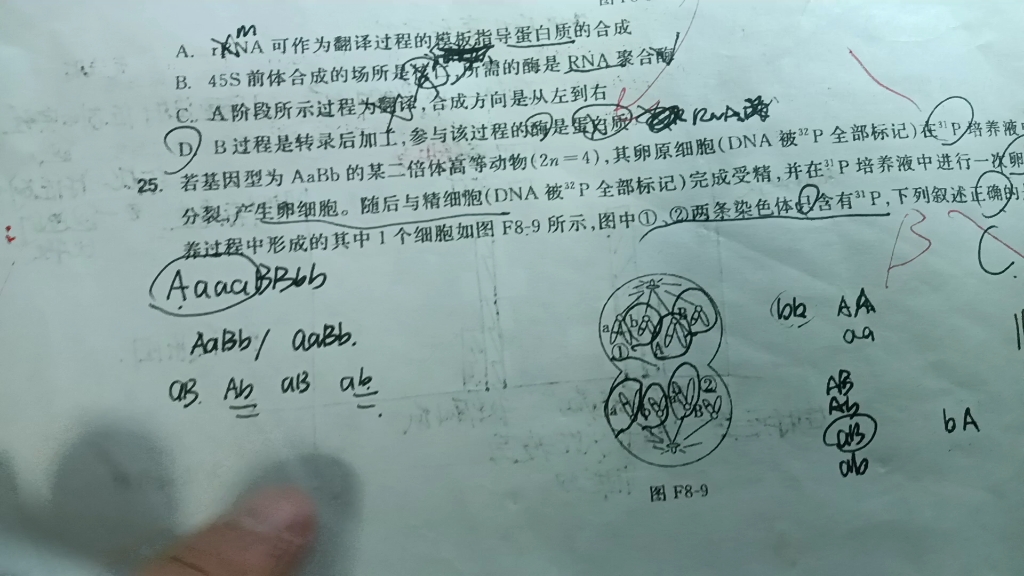 A. rRNA 可作为翻译过程的模板指导蛋白质的合成
m
B. 45S 前体合成的场所是核仁,所需的酶是 RNA 聚合酶
C. A 阶段所示过程为翻译,合成方向是从左到右
D. B 过程是转录后加工,参与该过程的酶是蛋白质
25. 若基因型为 AaBb 的某二倍体高等动物(2n=4),其卵原细胞(DNA 被³²P 全部标记)在³¹P 培养液
分裂,产生卵细胞。随后与精细胞(DNA 被³²P 全部标记)完成受精,并在³¹P 培养液中进行一次卵
养过程中形成的其中 1 个细胞如图 F8-9 所示,图中①、②两条染色体仅含有³¹P,下列叙述正确的
B C
AaaaBBbb
AaBb / aaBb.
aB. Ab aB ab
①
②
bb AA
aa
AB
Ab
aB
ab
bA
图 F8-9